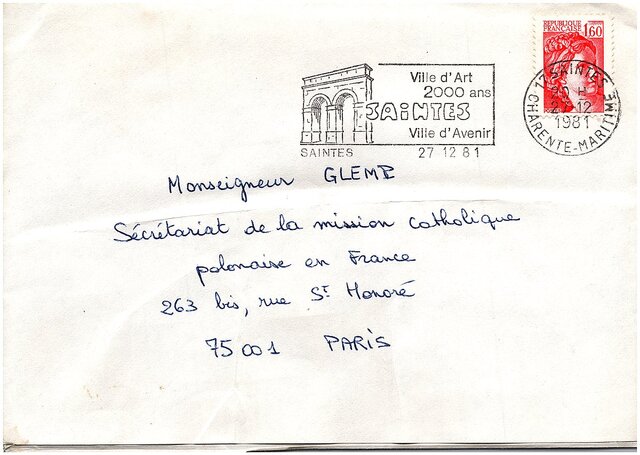 REPUBLIQUE
FRANÇAISE 1,60
Ville d'Art
2000 ans
SAINTES
Ville d'Avenir
SAINTES 27 12 81
17 SAINTES
20 H
27-12
1981
CHARENTE-MARITIME
Monseigneur GLEMB
Sécrétariat de la mission catholique
polonaise en France
263 bis, rue St Honoré
75001 PARIS